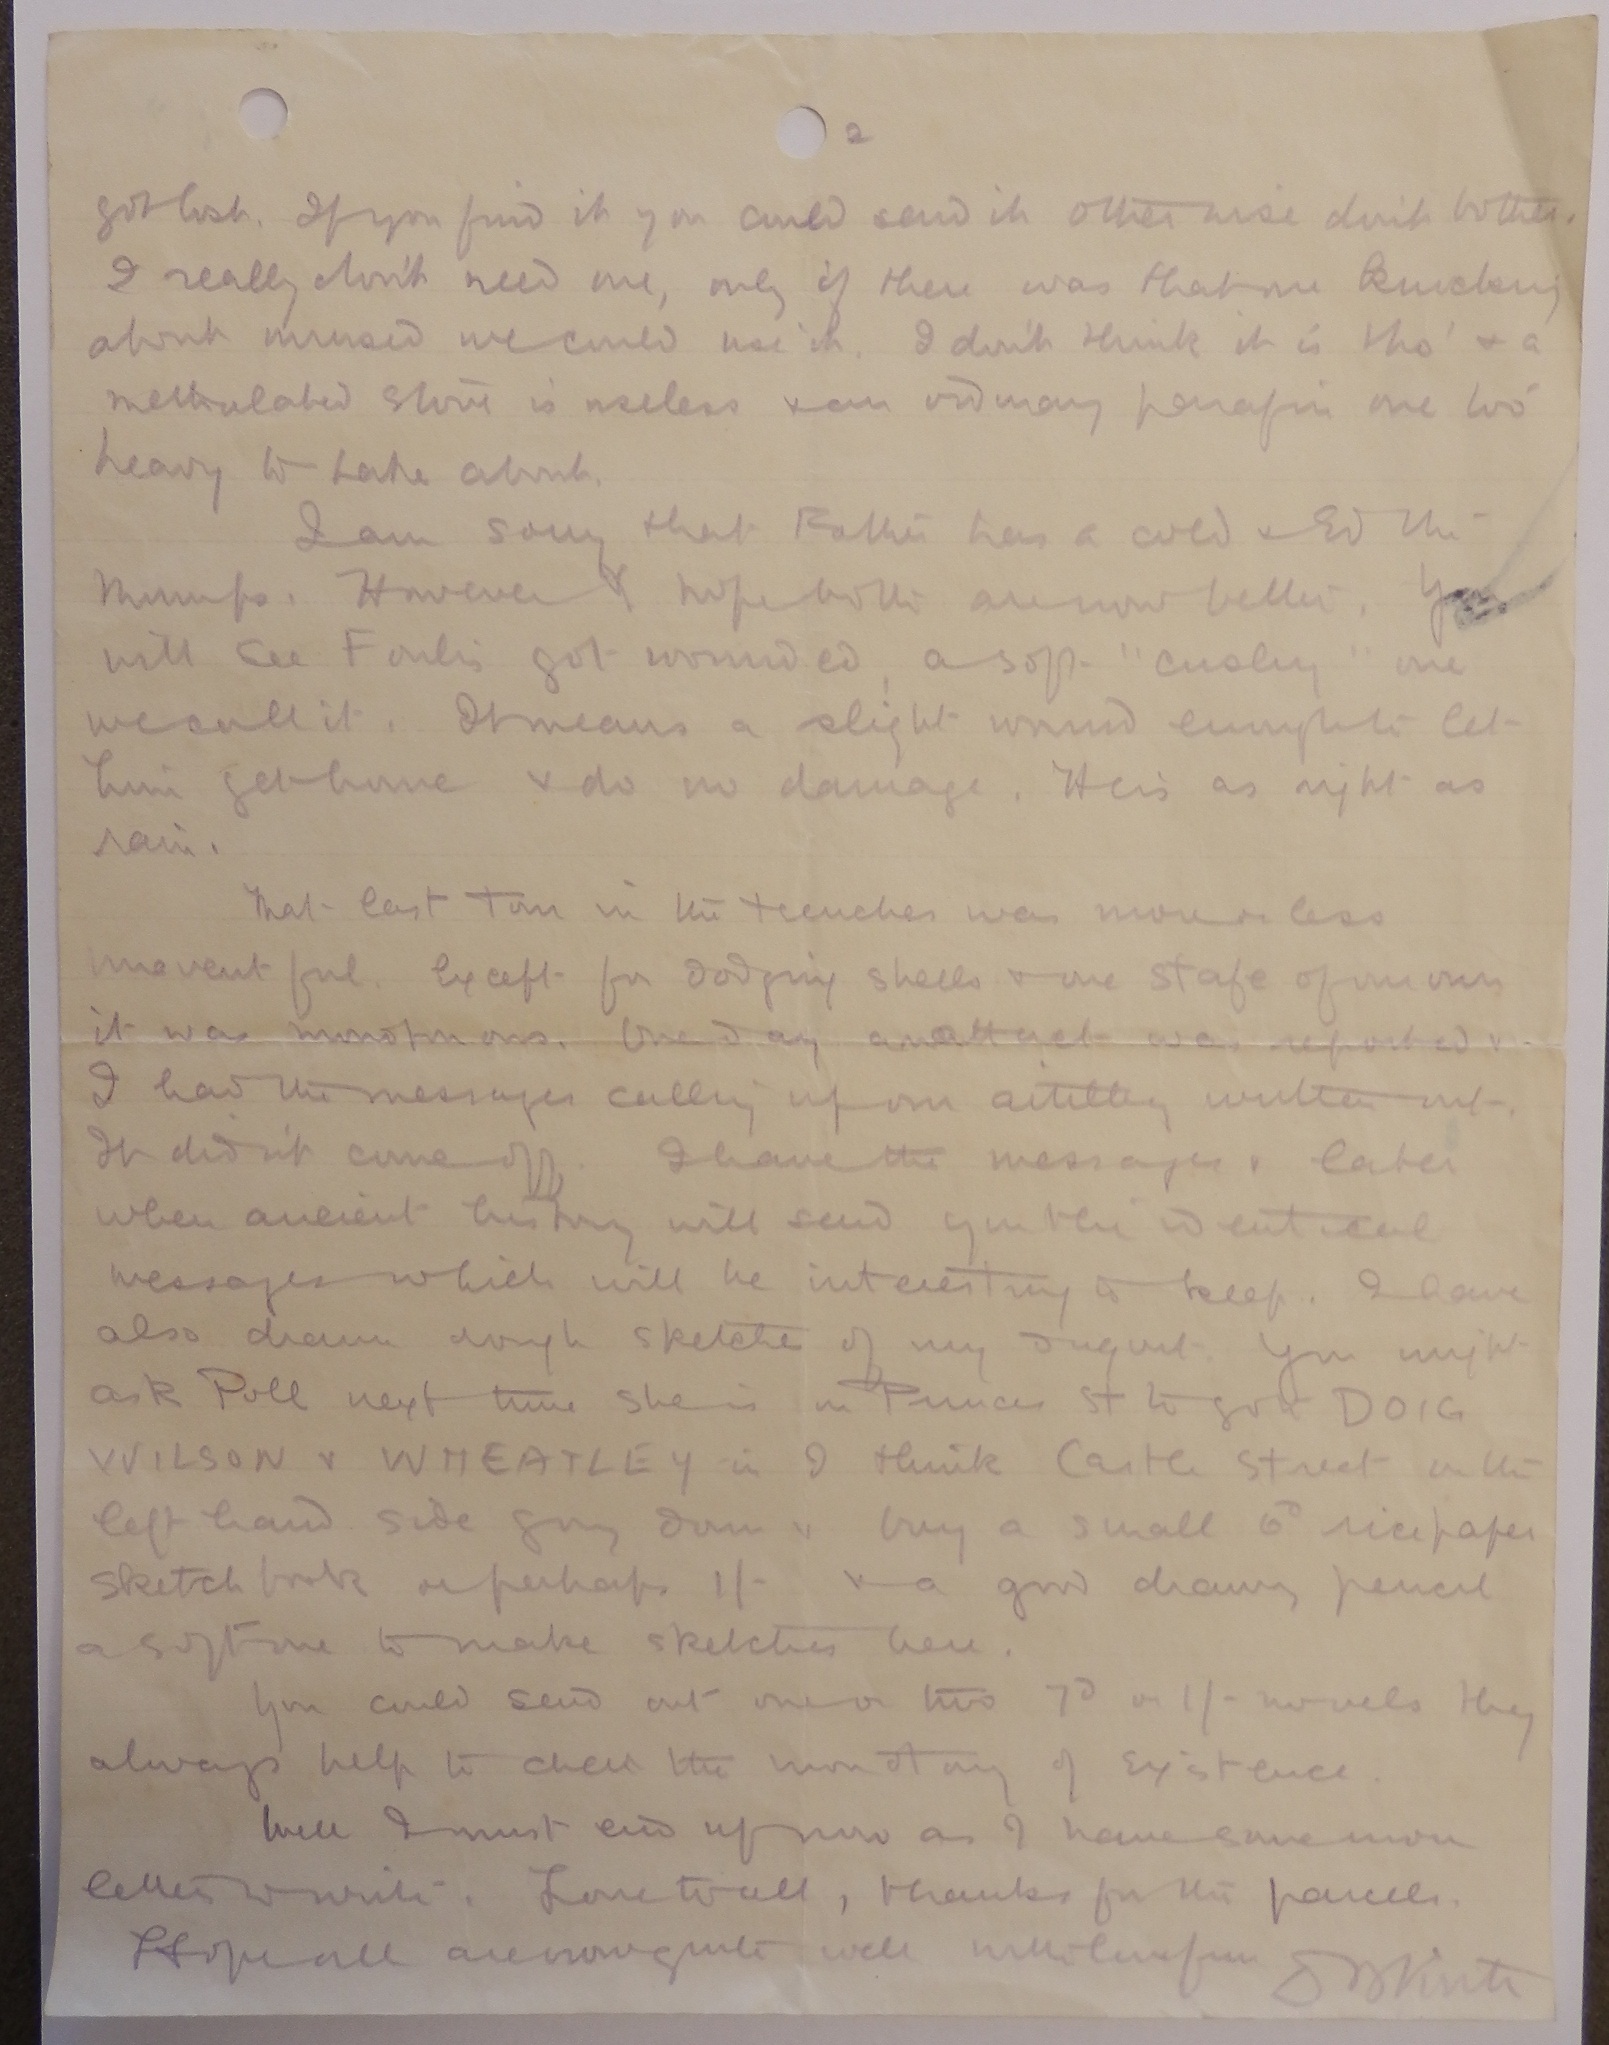 2
got lost. If you find it you could send it otherwise don't bother.
I really don't need one, only if there was that one knocking
about unused we could use it. I don't think it is tho' & a
methulated stove is useless & an ordinary parrafin one too
heavy to take about.
I am sorry that Father has a cold & Ed the
Mumps. However I hope both are now better. You
will see Foulis got wounded, a soft "cushy" one
we call it. It means a slight wound enough to let
him get home & do no damage. He is as right as
rain.
That last tour in the trenches was more or less
uneventful. Except for dodging shells & one stafe of our own
it was monotonous. One day an attack was reported &
I had the messages calling up our artillery written out.
It didn't come off. I have the messages & later
when ancient history will send you the identical
messages which will be interesting to keep. I have
also drawn rough sketches of my dugout. You might
ask Poll next time she is in Princes St to go to DOIG
WILSON & WHEATLEY in I think Castle Street on the
left hand side going down & buy a small 6d rice paper
sketch book or perhaps 1/- & a good drawing pencil
a soft one to make sketches here.
You could send out one or two 7d or 1/- novels they
always help to cheer the monotony of existence.
Well I must end up now as I have some more
letters to write. Love to all, thanks for the parcels.
Hope all are now quite well with love from